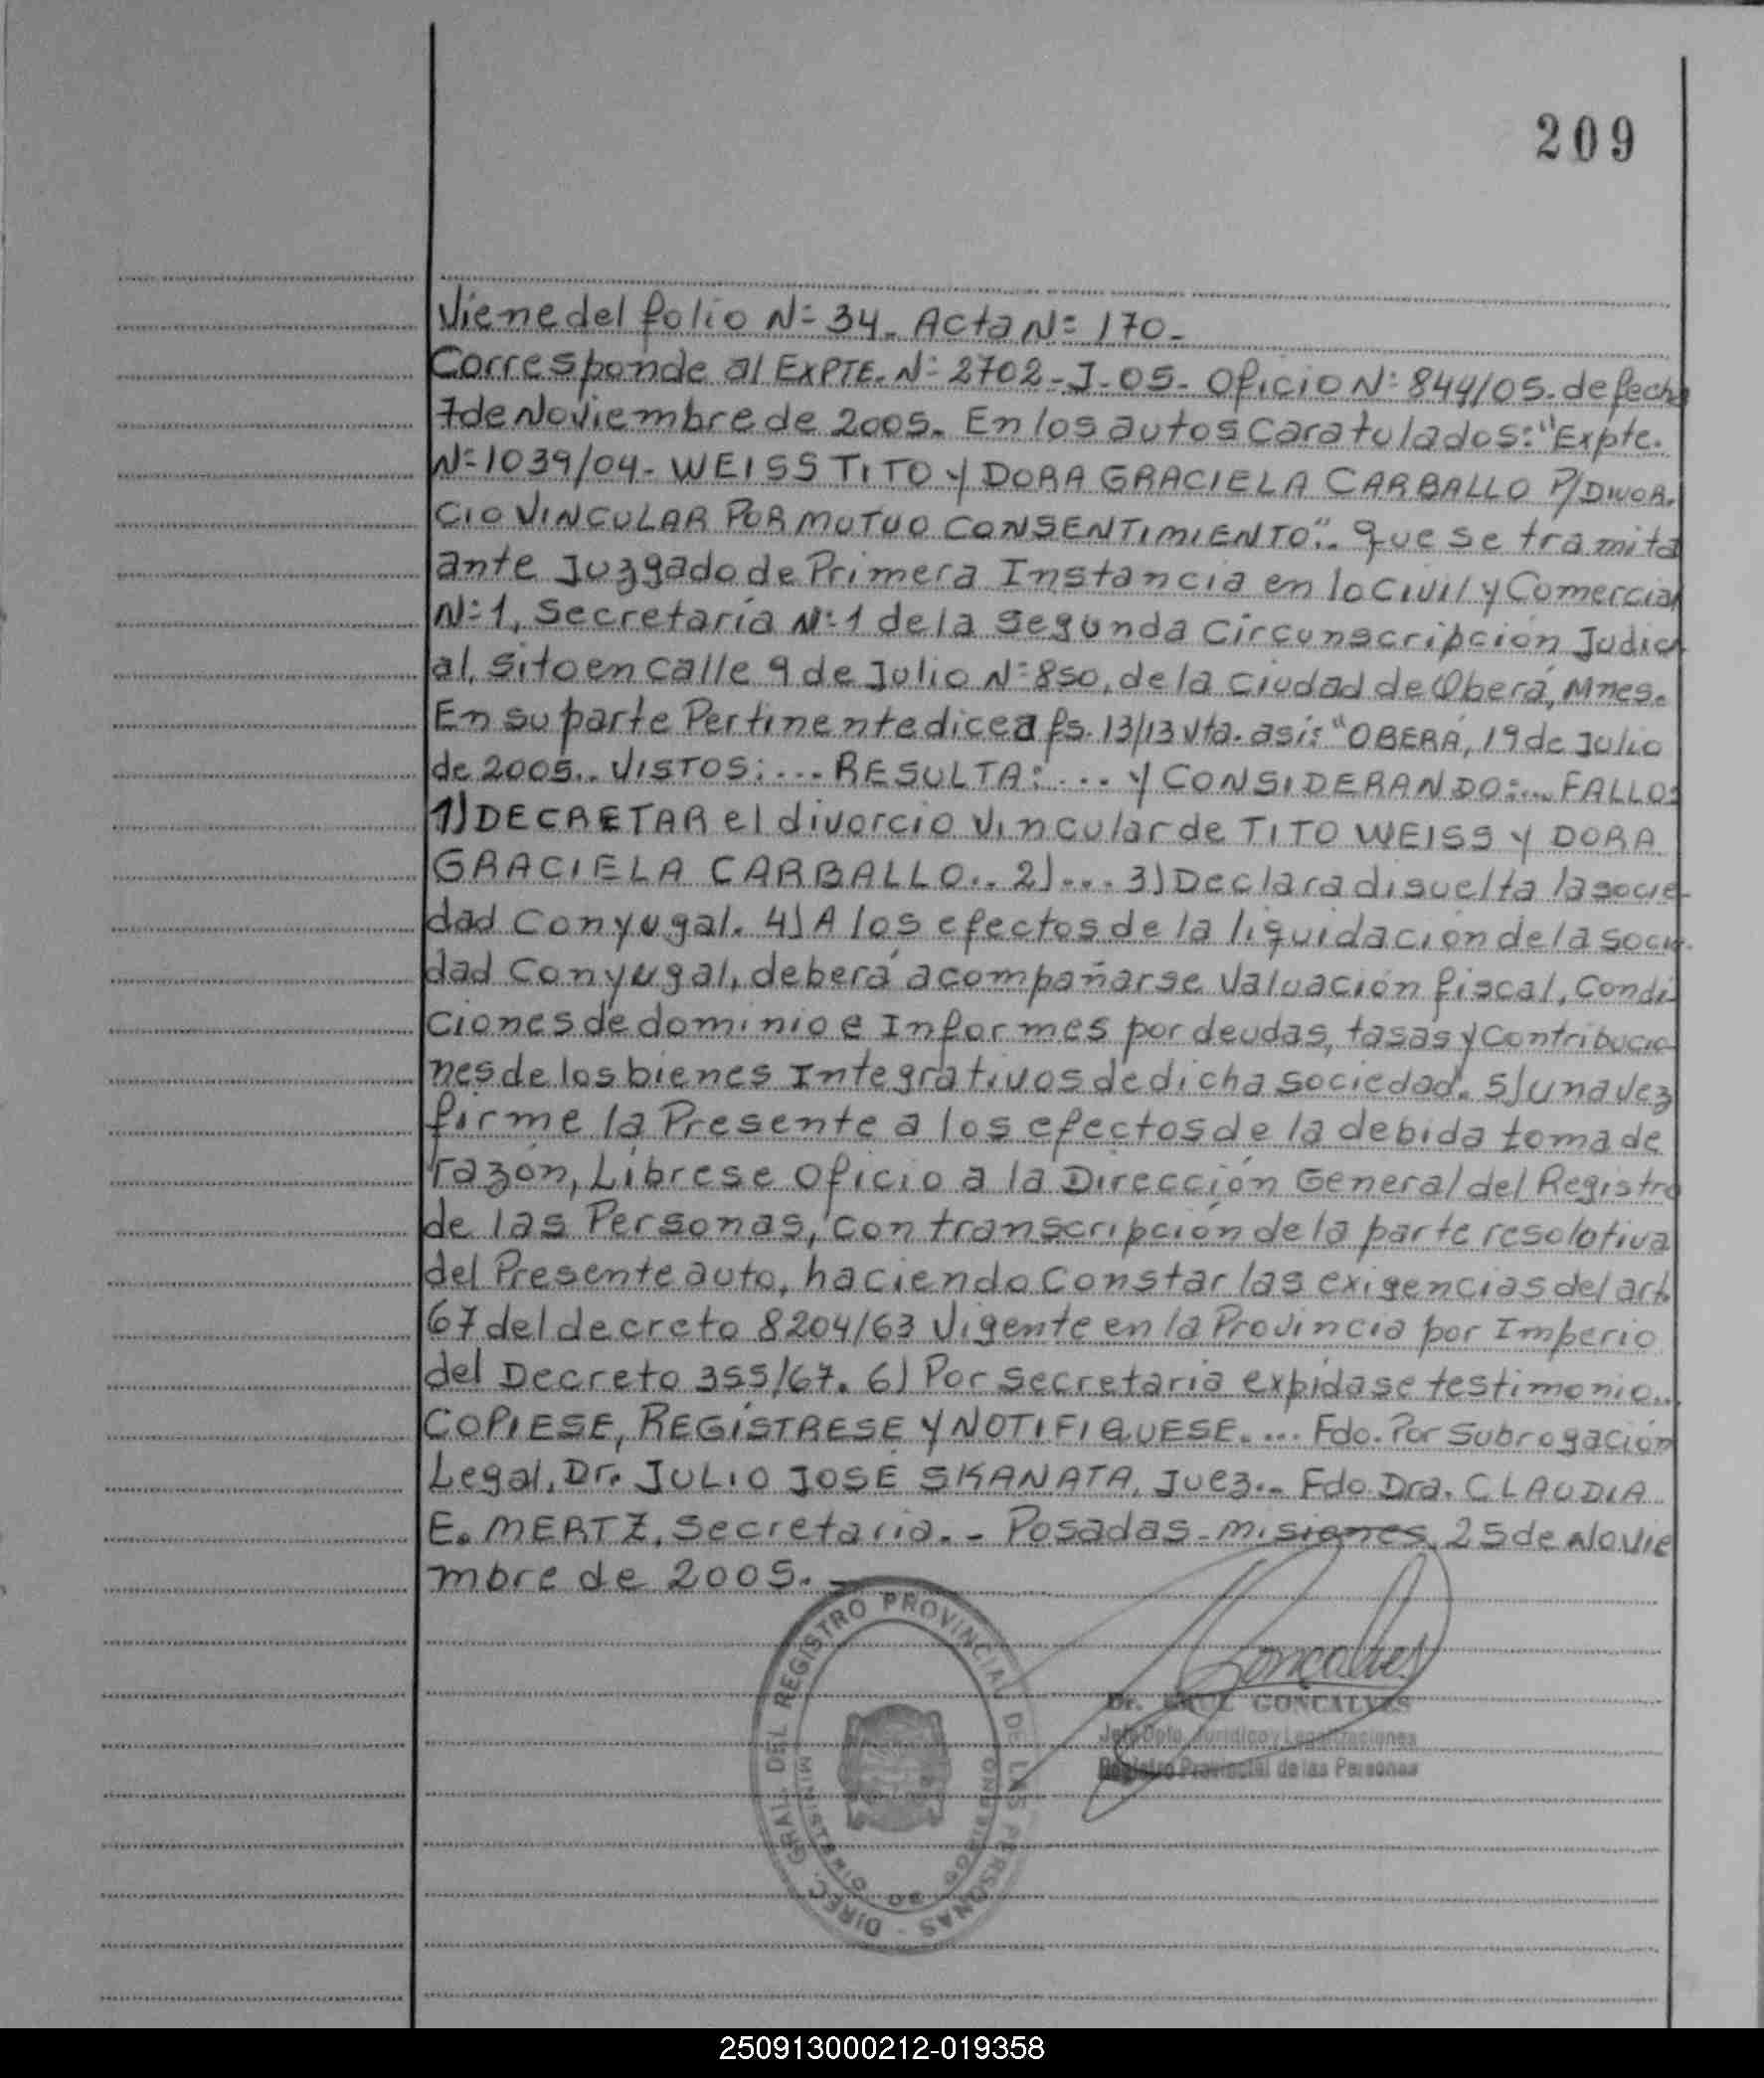 209
Viene del folio Nº 34. Acta Nº 170.
Corresponde al EXPTE. Nº 2702-J-05. Oficio Nº 844/05. de fecha
7 de Noviembre de 2005. En los autos Caratulados: "Expte.
Nº 1039/04. WEISS TITO y DORA GRACIELA CARBALLO P/DIVOR.
CIO VINCULAR POR MUTUO CONSENTIMIENTO". que se tramita
ante Juzgado de Primera Instancia en lo Civil y Comercial
Nº 1, Secretaría Nº 1 de la Segunda Circunscripción Judici
al, sito en calle 9 de Julio Nº 850, de la Ciudad de Oberá, Mnes.
En su parte Pertinente dice a fs. 13/13 vta. así: "OBERÁ, 19 de Julio
de 2005.. VISTOS: ... RESULTA: ... y CONSIDERANDO:... FALLO:
1) DECRETAR el divorcio vincular de TITO WEISS y DORA
GRACIELA CARBALLO.. 2) ... 3) Declara disuelta la socie-
dad Conyugal. 4) A los efectos de la liquidación de la socie-
dad Conyugal, deberá acompañarse Valuación fiscal, Condi
ciones de dominio e Informes por deudas, tasas y Contribucio
nes de los bienes Integrativos de dicha sociedad. 5) Una vez
firme la Presente a los efectos de la debida toma de
razón, Líbrese Oficio a la Dirección General del Registro
de las Personas, con transcripción de la parte resolutiva
del Presente auto, haciendo Constar las exigencias del art.
67 del decreto 8204/63 Vigente en la Provincia por Imperio
del Decreto 355/67. 6) Por Secretaria expídase testimonio...
COPIESE, REGÍSTRESE Y NOTIFIQUESE. ... Fdo. Por Subrogación
Legal, Dr. JULIO JOSE SKANATA, Juez.- Fdo Dra. CLAUDIA
E. MERTZ, Secretaria. - Posadas - misiones, 25 de Novie
mbre de 2005. -
DIREC. GRAL. DEL REGISTRO PROVINCIAL DE LAS PERSONAS -
MINISTERIO DE GOBIERNO
Goncalves
Dr. GONCALVES
Jefe Dpto. Jurídico y Legalizaciones
Registro Provincial de las Personas
250913000212-019358